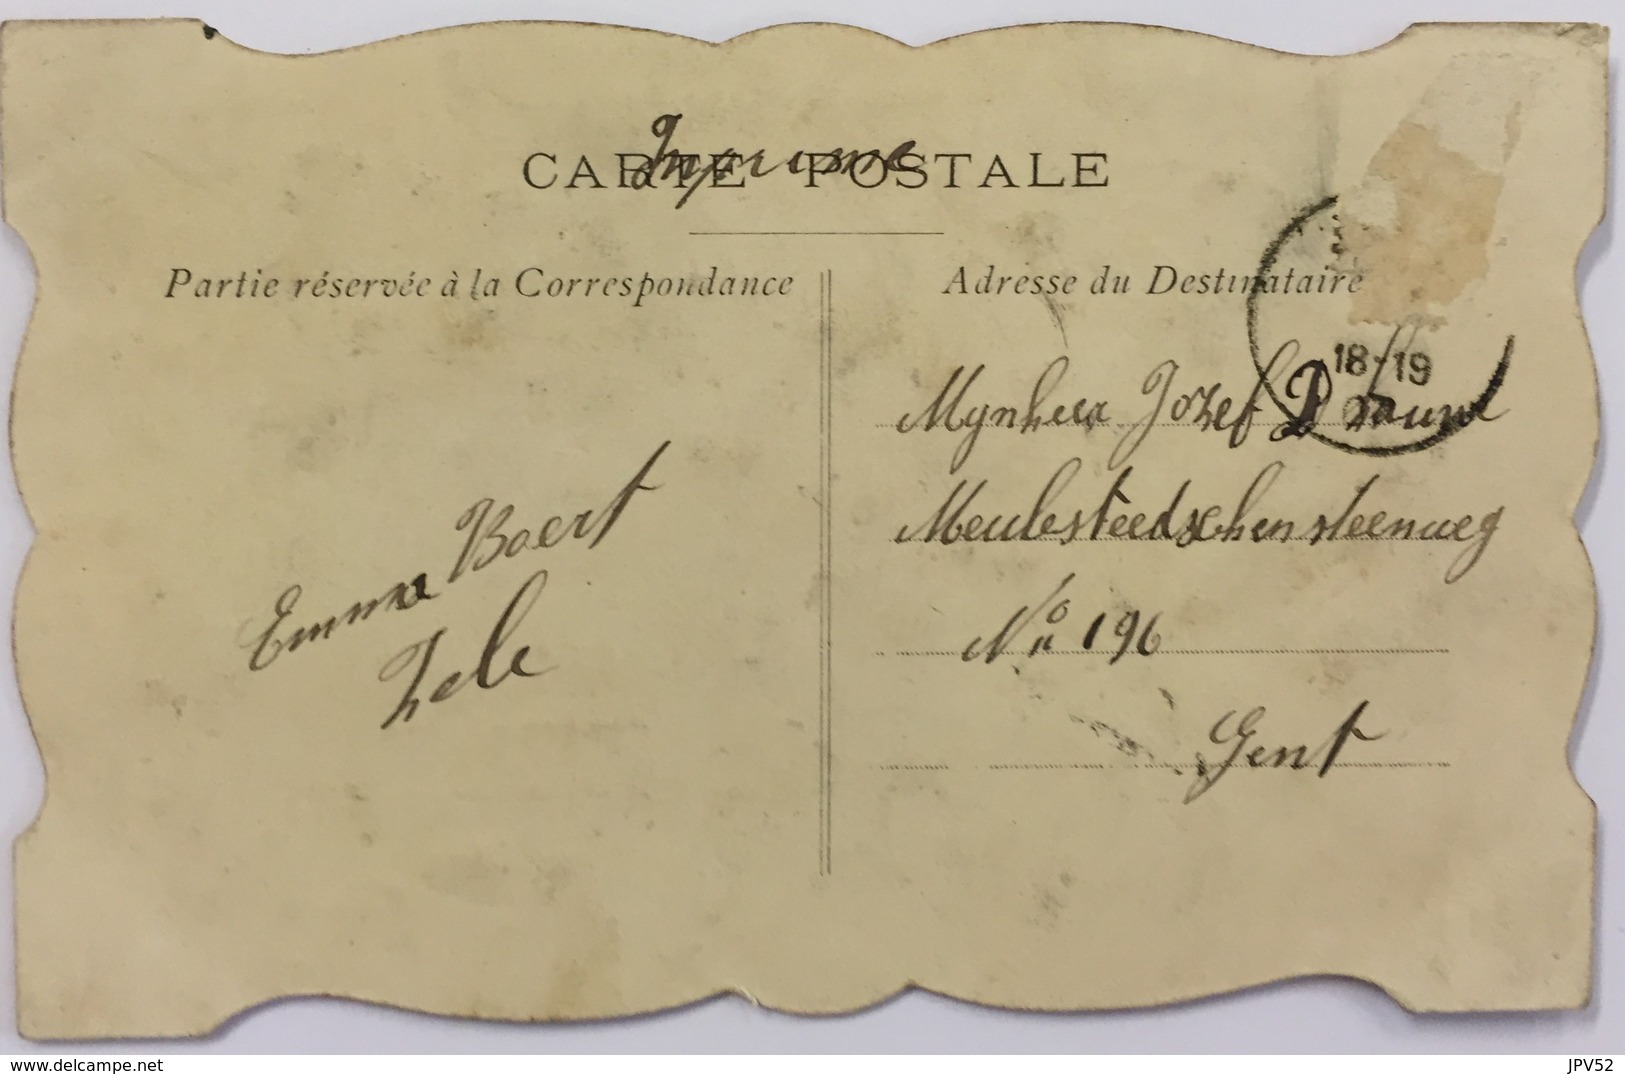 CARTE POSTALE
Imprime
Partie réservée à la Correspondance
Adresse du Destinataire
18-19
Mynheer Jozef
Meulesteedschensteenweg
No 196
Gent
Emma Baert
Zele
www.delcampe.net
JPV52